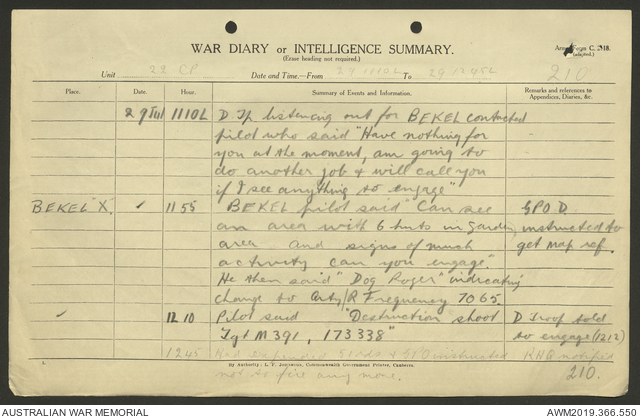 Army Form C. 2118.
(adapted.)
WAR DIARY or INTELLIGENCE SUMMARY.
(Erase heading not required.)
210
Unit 22 CP Date and Time.—From 29 1110L To 29 1245L
Place. Date. Hour. Summary of Events and Information. Remarks and references to Appendices, Diaries, &c.
29 Jul 1110L D Tp listening out for BEKEL contacted
pilot who said "Have nothing for
you at the moment, am going to
do another job & will call you
if I see anything to engage"
BEKEL "X" 1155 BEKEL pilot said "Can see GPO D
an area with 6 huts in garden instructed to
area and signs of much get map ref.
activity can you engage."
He then said "Dog Roger" indicating
change to Arty/R Frequency 7065.
1210 Pilot said "Destruction shoot D Troop told
Tgt M391, 173338" to engage (1212)
1245 expended instructed RHQ notified
not to fire any more. 210.
By Authority: L. F. Johnston, Commonwealth Government Printer, Canberra.
AUSTRALIAN WAR MEMORIAL AWM2019.366.550